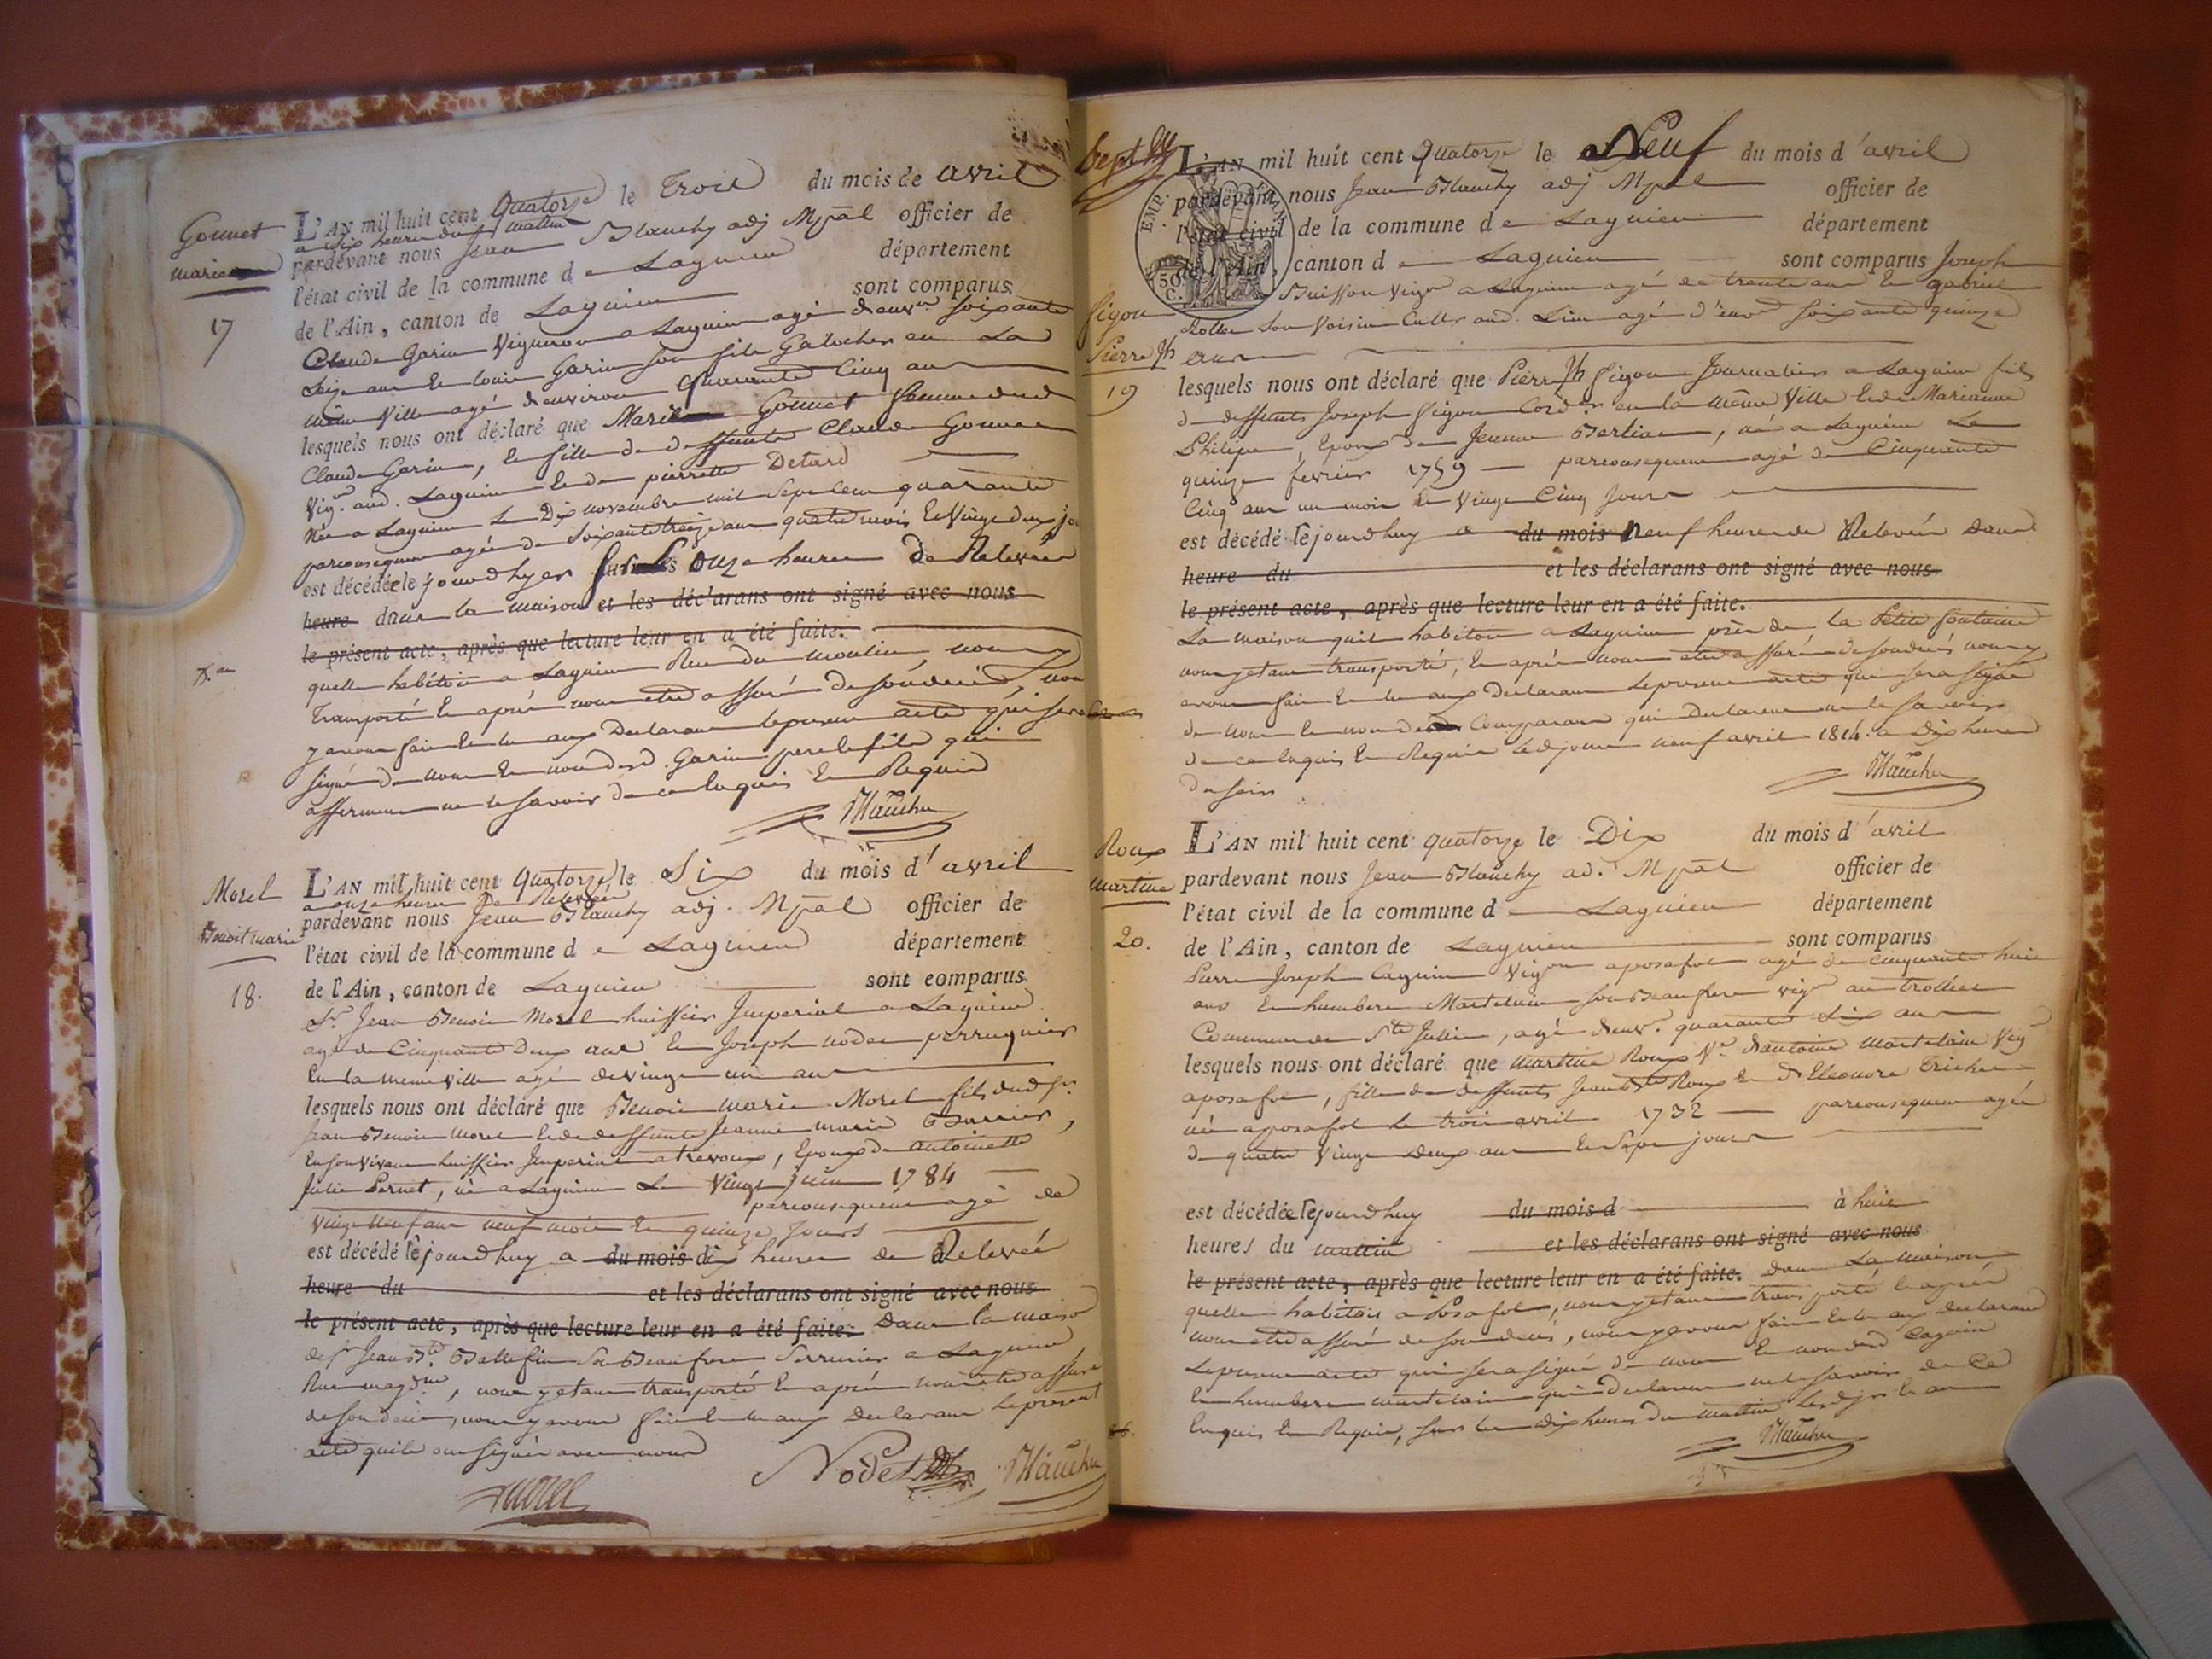 Gonnet
marie
17
L'AN mil huit cent Quatorze le Trois du mois de avril
a dix heures du mattin
pardevant nous Jean Blauchy adj Mpal officier de
l'état civil de la commune de Lagnieu département
de l'Ain, canton de Lagnieu sont comparus
Claude Garin Vigneron a Lagnieu agé denvon soixante
seize ans et Louis Garin son fils Galocher en La
même Ville agé denviron quarante Cinq ans
lesquels nous ont déclaré que Marie Gonnet femme dud
Claude Garin, et fille de deffunts Claude Gonnet
Vign. aud. Lagnieu et de pierrette Detard
Née a Lagnieu le Dix novembre mil sept cent quarante
parconsequent agée de soixante treize ans quatre mois et Vingt deux jo
est décédée le jourdhyer sur les onze heures de Relevée
heure dans la maison et les déclarans ont signé avec nous
le présent acte, après que lecture leur en a été faite.
quelle habitoit a Lagnieu Rue du moulin, nous y
Transporté et après nous etre assuré de son décès, nous
y avons fait et lu aux Declarans le present acte qui sera
signé de nous et non desd. Garin pere et fils qui
afferment ne le savoir de ce enquis et Requis
Blauchy
Morel
Benoit marie
18.
L'AN mil huit cent Quatorze le Six du mois d'avril
a onze heures De Relevée
pardevant nous Jean Blauchy adj. Mpal officier de
l'état civil de la commune de Lagnieu département
de l'Ain, canton de Lagnieu sont comparus
Sr. Jean Benoit Morel huissier Imperial a Lagnieu
agé de Cinquante Deux ans et Joseph nodet perruquier
En la meme Ville agé de vingt un ans
lesquels nous ont déclaré que Benoit marie Morel fils dud Sr.
Jean Benoit Morel et de deffunte Jeanne marie Barrier,
En son Vivant huissier Imperial a trevoux, Epoux de antoinette
Julie Pernet, né a Lagnieu Le Vingt juin 1784
parconsequent agé de
Vingt neuf ans neuf mois et quinze Jours
est décédé le jourdhuy a du mois dix heures de Relevée
heure du et les déclarans ont signé avec nous
le présent acte, après que lecture leur en a été faite. Dans la maison
de Sr Jean Bte. Ballefin son Beau frere Serrurier a Lagnieu
Rue magdne, nous y etant transporté et après nous etre assuré
de son décès, nous y avons fait et lu aux Declarans le present
acte quils ont signé avec nous
Morel Nodet Blauchy
Sept
L'AN mil huit cent Quatorze le Neuf du mois d'avril
pardevant nous Jean Blauchy adj Mpal officier de
l'état civil de la commune de Lagnieu département
de l'Ain, canton de Lagnieu sont comparus Joseph
Buisson Vigon a Lagnieu agé de trente ans et gabriel
Rollet son Voisin Cultr aud. Lieu agé d'env soixante quinze
ans
Pierre Jh
19
lesquels nous ont déclaré que Pierre Jh Figon Journalier a Lagnieu fils
de deffunts Joseph Figon Cordr en la même Ville et de Marianne
Philipe, Epoux de Jeanne Berlion, né a Lagnieu Le
quinze fevrier 1759 parconsequent agé de Cinquante
Cinq ans un mois et Vingt Cinq Jours
est décédé le jourdhuy a du mois Neuf heures de Relevée Dans
heure du et les déclarans ont signé avec nous
le présent acte, après que lecture leur en a été faite.
La maison quil habitoit a Lagnieu près de la Petite fontaine
nous y etant transporté, et après nous etre assuré de son décès nous y
avons fait et lu aux Declarans le present acte qui sera signé
de nous et non desd Comparans qui Declarent ne le savoir
de ce enquis et Requis ledjour neuf avril 1814. a Dix heures
du soir
Blauchy
Roux
martine
20.
L'AN mil huit cent quatorze le Dix du mois d'avril
pardevant nous Jean Blauchy ad. Mpal officier de
l'état civil de la commune de Lagnieu département
de l'Ain, canton de Lagnieu sont comparus
Pierre Joseph Cagnin Vigon a posafol agé de cinquante huit
ans et humbert Martelain son Beau frere vign au trollier
Commune de Ste Julie, agé denv. quarante Six ans
lesquels nous ont déclaré que martine Roux Ve. dantoine martelain Vign
a posafol, fille de deffunts Jean Bte Roux et d Eleonore Trichet
née a posafol le trois avril 1732 parconsequent agée
de quatre Vingt deux ans et Sept jours
est décédée le jourdhuy du mois d à huit
heures du mattin et les déclarans ont signé avec nous
le présent acte, après que lecture leur en a été faite. Dans La maison
quelle habitoit a Posafol, nous y etant transporté et après
nous etre assuré de son décès, nous y avons fait et lu aux declarans
le present acte qui sera signé de nous et non desd Cagnin
et humbert martelain qui declarent ne le savoir de ce
Enquis et Requis, sur les dix heures du mattin lesd jr et an
Blauchy